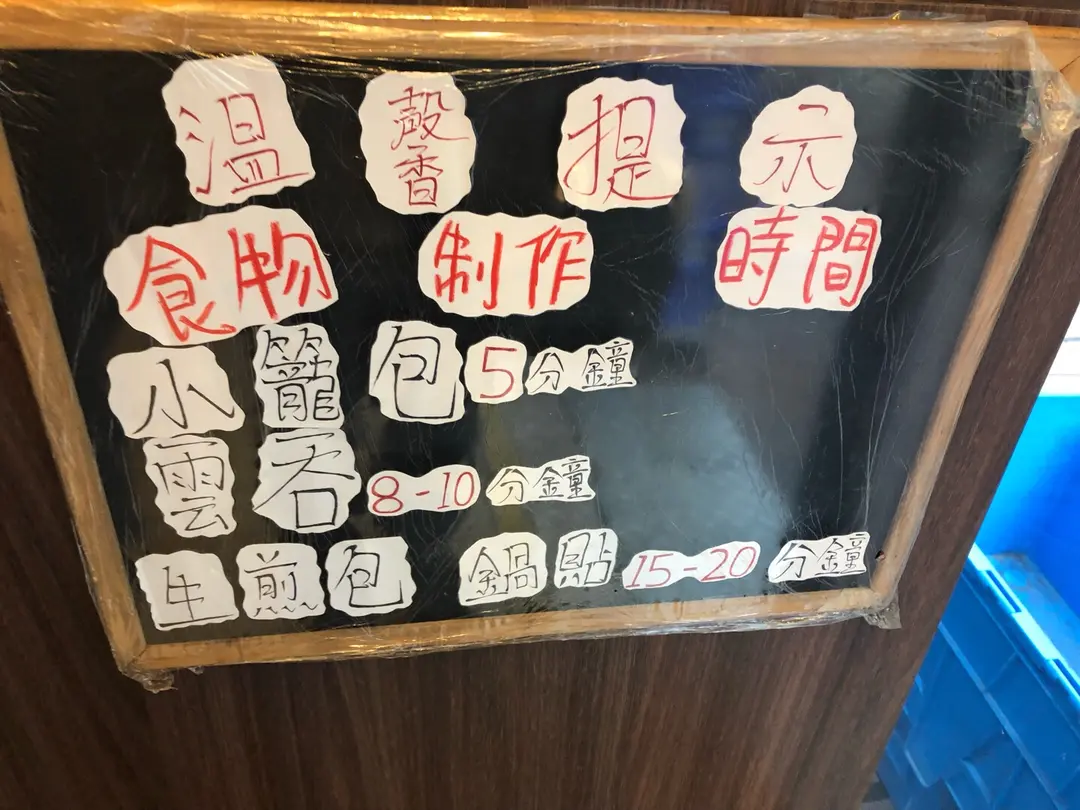 温馨提示
食物 制作 時間
小籠包 5分鐘
雲吞 8-10 分鐘
生煎包 鍋貼 15-20 分鐘